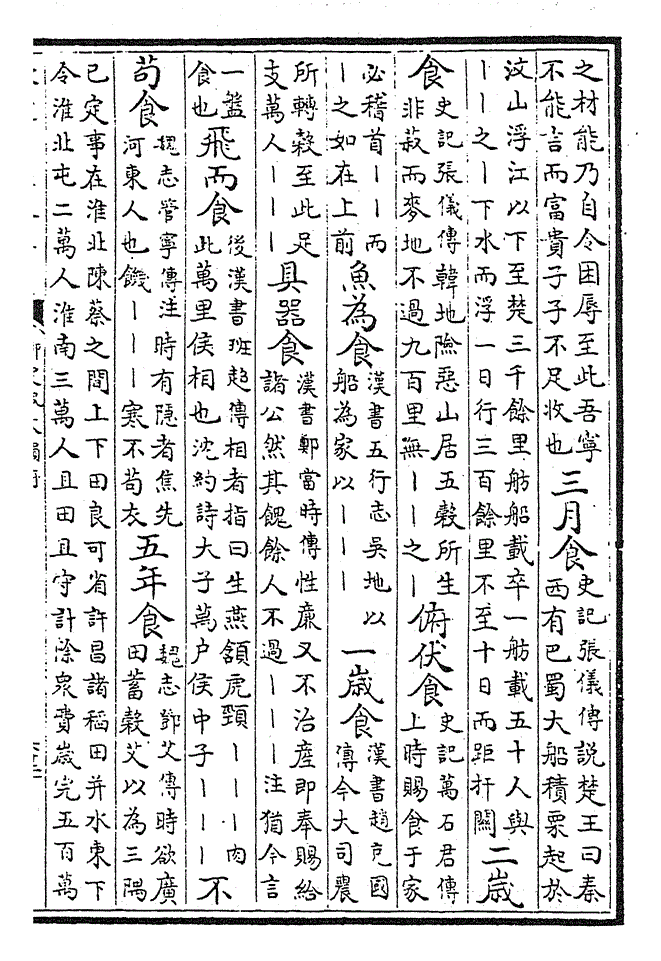 之材能乃自令困辱至此吾寧
不能言而富貴子子不足收也
三月食
史記張儀傳説楚王曰秦
西有巴蜀大船積粟起於
汶山浮江以下至楚三千餘里舫船載卒一舫載五十人與
｜｜之｜下水而浮一日行三百餘里不至十日而距扞關
二歳
食
史記張儀傳韓地險惡山居五穀所生
非菽而麥地不過九百里無｜｜之｜
俯伏食
史記萬石君傳
上時賜食于家
必稽首｜｜而
｜之如在上前
魚為食
漢書五行志吳地以
船為家以｜｜｜
一歳食
漢書趙充國
傳今大司農
所轉穀至此足
支萬人｜｜｜
具器食
漢書鄭當時傳性廉又不治產即奉賜給
諸公然其餽餘人不過｜｜｜注猶今言
一盤
食也
飛而食
後漢書班超傳相者指曰生燕頷虎頸｜｜｜肉
此萬里侯相也沈約詩大子萬户侯中子｜｜｜
不
苟食
魏志管寧傳注時有隱者焦先
河東人也饑｜｜｜寒不苟衣
五年食
魏志鄧艾傳時欲廣
田蓄穀艾以為三隅
已定事在淮北陳蔡之間上下田良可省許昌諸稻田并水東下
令淮北屯二萬人淮南三萬人且田且守計除衆費歳完五百萬